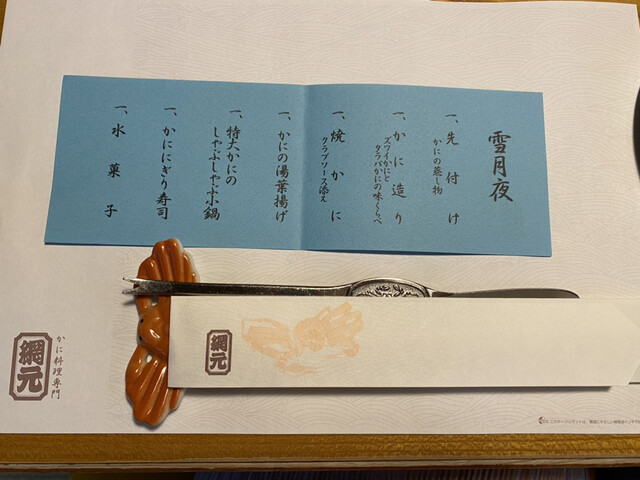 雪月夜
一、先付け
かにの蒸し物
一、かに造り
ズワイかにと
タラバかにの味くらべ
一、焼かに
クラブソース添え
一、かにの湯葉揚げ
一、特大かにの
しゃぶしゃぶ小鍋
一、かににぎり寿司
一、水菓子
網元
かに料理専門
網元